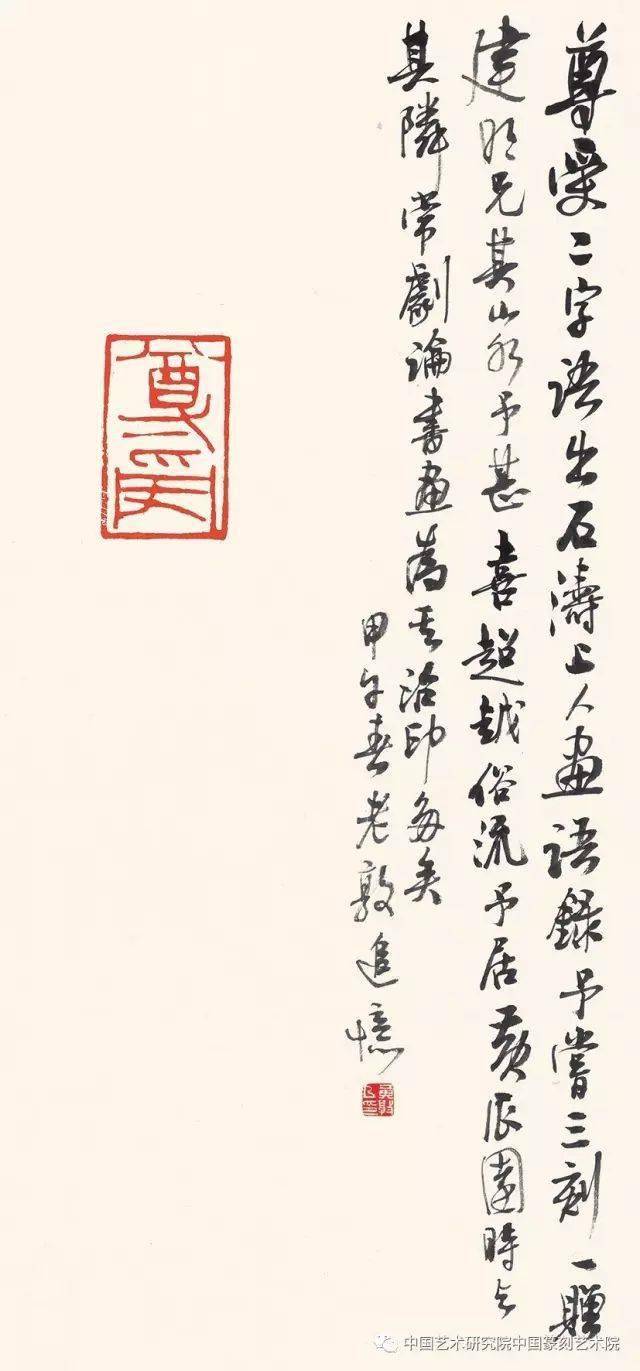 尊受二字語出石濤上人畫語錄予嘗三刻一贈
建明兄其山水予甚喜超越俗流予居黃辰園時與
其隣常劇論書畫為其治印多矣
甲午春老敦追憶
尊受
中国艺术研究院中国篆刻艺术院